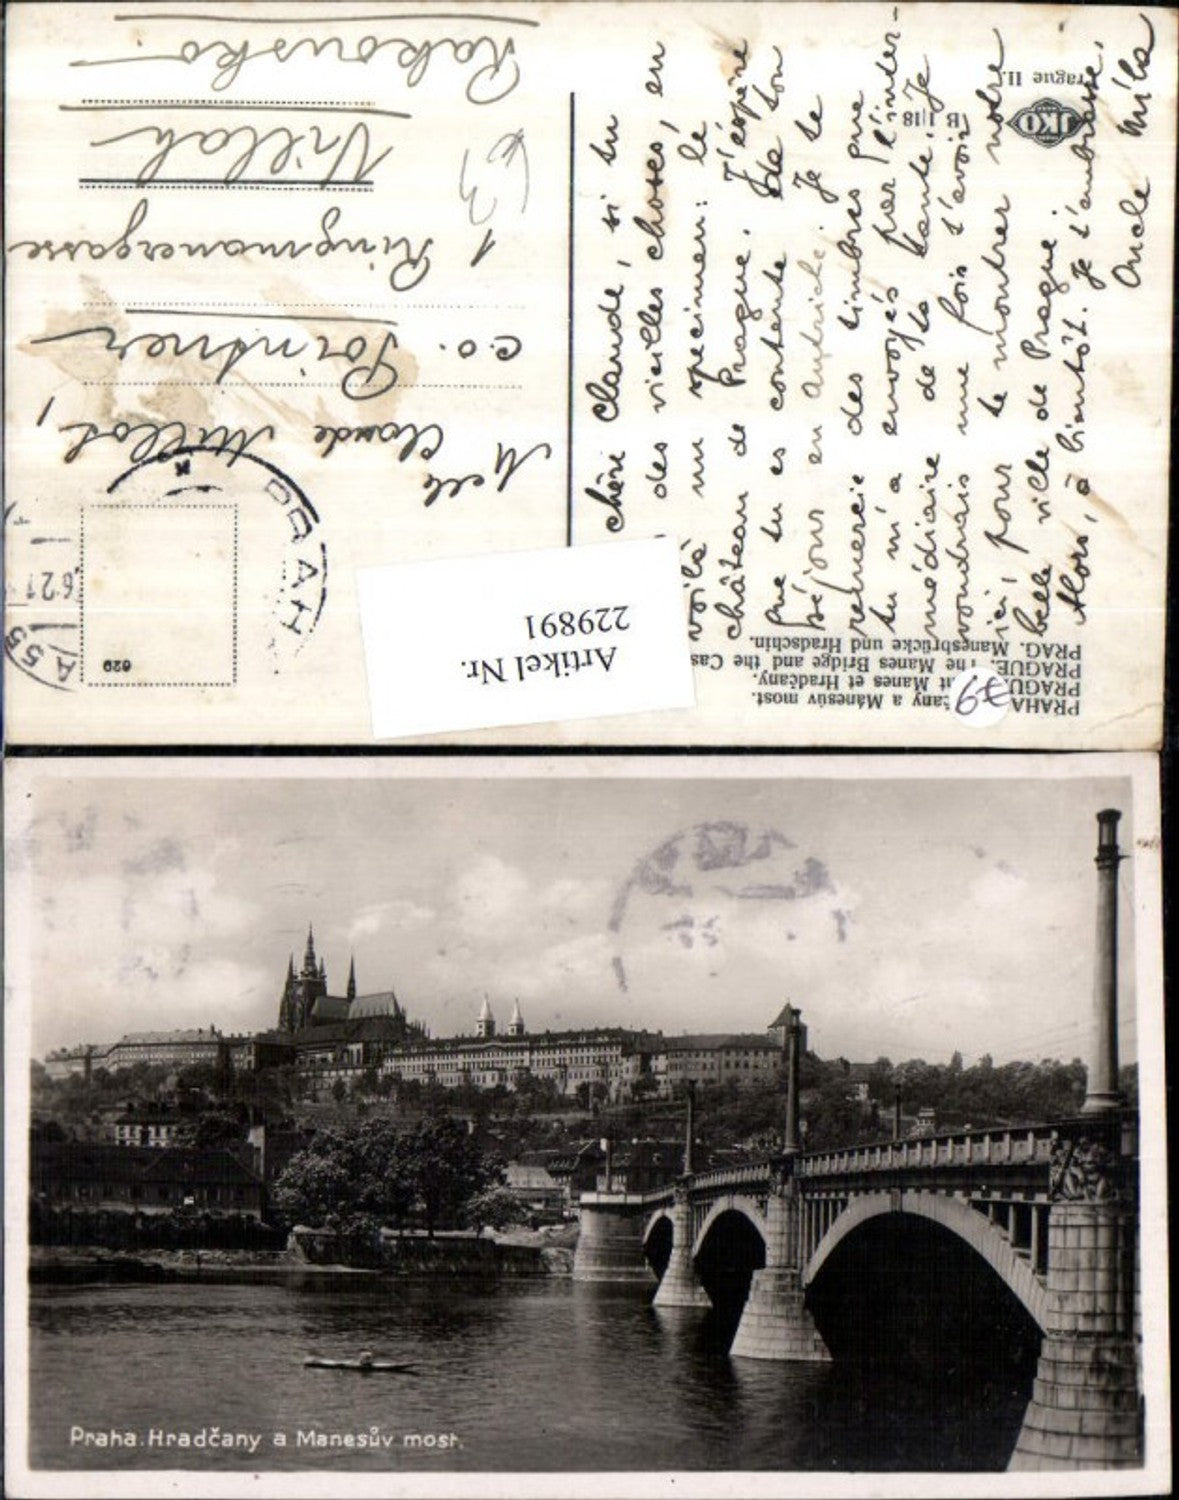 PRAHA
čany a Mánesův most.
PRAGU
t Manes et Hradčany.
PRAGUE. The Manes Bridge and the Cas
PRAG. Manesbrücke und Hradschin.
B 1/18
JKO
rague II.
629
Artikel Nr.
229891
79
chéri Claude, si tu
des vieilles choses, en
voilà un specimen: le
château de Prague. J'espère
que tu es contente de ton
séjour en Autriche. Je te
remercie des timbres que
tu m'a envoyés par l'inter-
médiaire de ta tante. Je
voudrais une fois t'avoir
ici, pour te montrer notre
belle ville de Prague
Alors, à bientôt. Je t'embrasse,
Oncle Míla
PRAH
A 55
621
Melle Claude Millot,
c.o. Pointner
1 Ringmauergasse
Villach
Rakousko.
63
Praha. Hradčany a Manesův most.